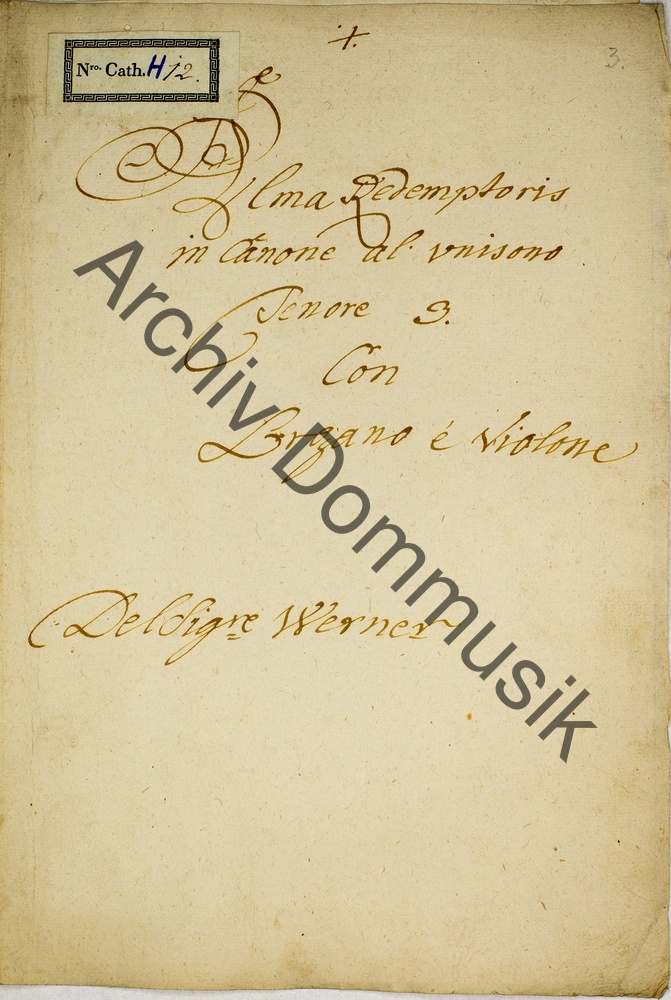 Nro. Cath. H 12.
3.
Alma Redemptoris
in Canone al' unisono
Tenore 3.
Con
Organo é Violone
Del Sigre Werner
Archiv Dommusik